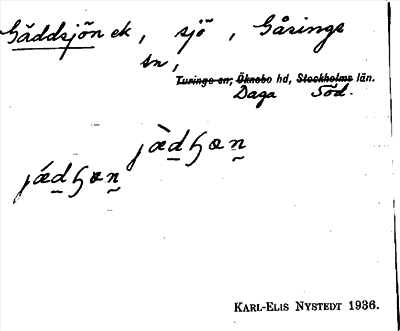 Gäddsjön ek, sjö, Gåsinge
sn,
Turinge sn, Öknebo hd, Stockholms län.
Daga Söd.
KARL-ELIS NYSTEDT 1936.